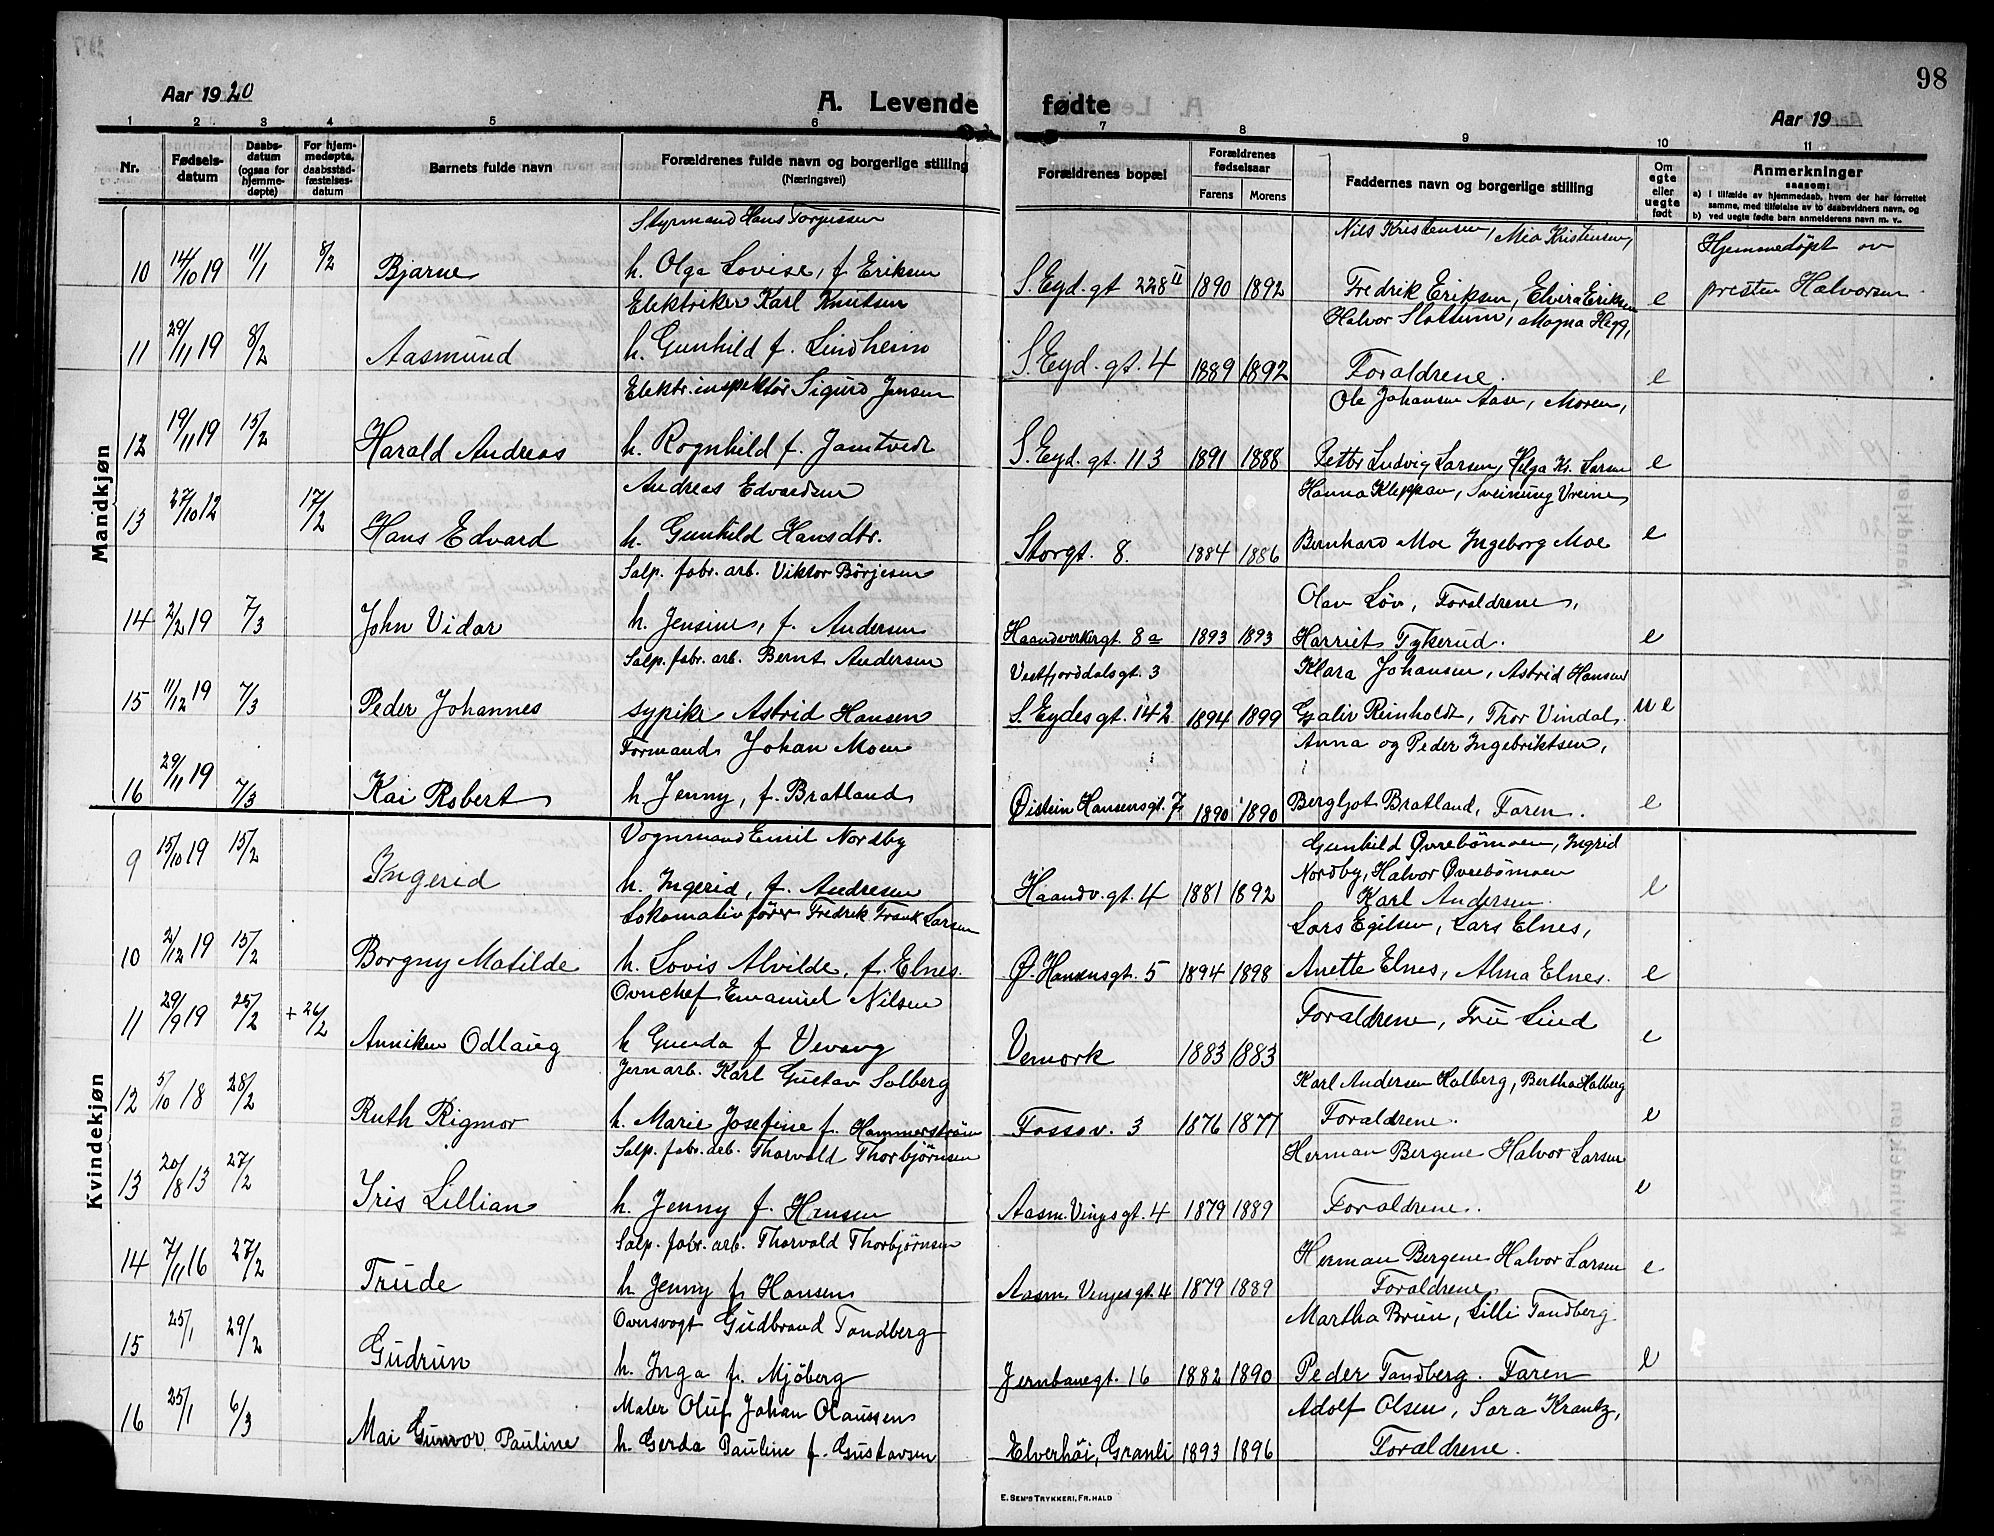 98
Aar 1920
A. Levende fødte
Aar 19
1 2 3 4 5 6 7 8 9 10 11
Nr.
Fødsels-
datum
Daabs-
datum
(ogsaa for
hjemme-
døpte)
For hjem-
medøpte,
daabsstad-
fæstelses-
datum
Barnets fulde navn
Forældrenes fulde navn og borgerlige stilling
(Næringsvei)
Forældrenes bopæl
Forældrenes
fødselsaar
Farens Morens
Faddernes navn og borgerlige stilling
Om
egte
eller
uegte
født
Anmerkninger
saasom:
a) i tilfælde av hjemmedaab, hvem der har forrettet
samme, med tilføielse av to daabsvidners navn, og
b) ved uegte fødte barn anmelderens navn m. v.
Mandkjøn
Styrmand Hans Torjussen Nils Kristensen, Mia Kristensen, Hjemmedöpt av
10 14/10 19 11/1 8/2 Bjarne h. Olga Lovise, f Eriksen S. Eyd. gt 228 II 1890 1892 Fredrik Eriksen, Elvira Eriksen e presten Halvorsen
Elektriker Karl Knutsen Halvor Slottum, Magna Hegg,
11 29/11 19 8/2 Aasmund h. Gunhild f. Lindheim S. Eyd. gt. 4 1889 1892 Foraldrene. e
Elektr. inspektör Sigurd Jensen Ole Johansen Aase, Moren,
12 19/11 19 15/2 Harald Andreas h. Ragnhild f. Jamtvedt S. Eyd. gt. 113 1891 1888 Petter Ludvig Larsen, Helga Kr. Larsen e
Andreas Edvardsen Hanna Kleppan, Sveinung Vreine,
13 27/10 12 17/2 Hans Edvard h. Gunhild Hansdtr. Storgt. 8. 1884 1886 Bernhard Moe Ingeborg Moe e
Salp. fabr. arb. Viktor Börjesen Olav Löv, Foraldrene,
14 2/2 19 7/3 John Vidar h. Jensine, f. Andersen Haandverkergt 8a 1893 1893 Harriet Tykerud. e
Salp. fabr. arb. Bernt Andersen Vestfjorddalsgt. 3 Klara Johansen, Astrid Hansen
15 11/12 19 7/3 Peder Johannes sypike Astrid Hansen S. Eydesgt. 142 1894 1899 Reinholdt, Thor Vindal. u e
Formand Johan Moen Anna og Peder Ingebriktsen,
16 29/11 19 7/3 Kai Robert h Jenny, f. Bratland Øistein Hansensgt. 7 1890 1890 Bergljot Bratland, Faren. e
Kvindekjøn
Vognmand Emil Nordby Gunhild Øvrebömoen, Ingrid
9 15/10 19 15/2 Ingerid h. Ingerid, f. Andresen Haandv. gt. 4 1881 1892 Nordby, Halvor Øvrebömoen e
Karl Andersen.
Lokomotivförer Fredrik Frank Larsen Lars Egilsen, Lars Elnes,
10 2/12 19 15/2 Borgny Matilde h. Lovis Alvilde, f. Elnes. Ø. Hansensgt. 5 1894 1898 Anette Elnes, Alma Elnes. e
Ovnchef Emanuel Nilsen
11 29/9 19 25/2 + 26/2 Anniken Odlaug h Gunda f Vevang Vemork 1883 1883 Foraldrene, Fru Lind e
Jernarb. Karl Gustav Solberg Karl Andersen Halberg, Bertha Halberg
12 5/10 18 28/2 Ruth Rigmor h. Marie Josefine f. Hammerström Fossov. 3 1876 1877 Foraldrene. e
Salp. fabr. arb. Thorvald Thorbjörnsen Herman Bergene Halvor Larsen
13 20/8 13 27/2 Iris Lillian h. Jenny f. Hansen Aasm. Vinjesgt. 4 1879 1889 Foraldrene. e
Salp. fabr. arb. Thorvald Thorbjörnsen Herman Bergene Halvor Larsen
14 7/11 16 27/2 Trude h. Jenny f. Hansen Aasm. Vinjesgt. 4 1879 1889 Foraldrene. e
Overvogt Gudbrand Tandberg Martha Brun, Lilli Tandberg
15 25/1 29/2 Gudrun h. Inga f. Mjöberg Jernbanegt. 16 1882 1890 Peder Tandberg. Faren e
Maler Oluf Johan Olaussen Adolf Olsen, Sara Krantz,
16 25/1 6/3 Mai Gunvor Pauline h. Gerda Pauline f. Gustavsen Elverhöi, Granli 1893 1896 Foraldrene.
E. SEM'S TRYKKERI, FR. HALD